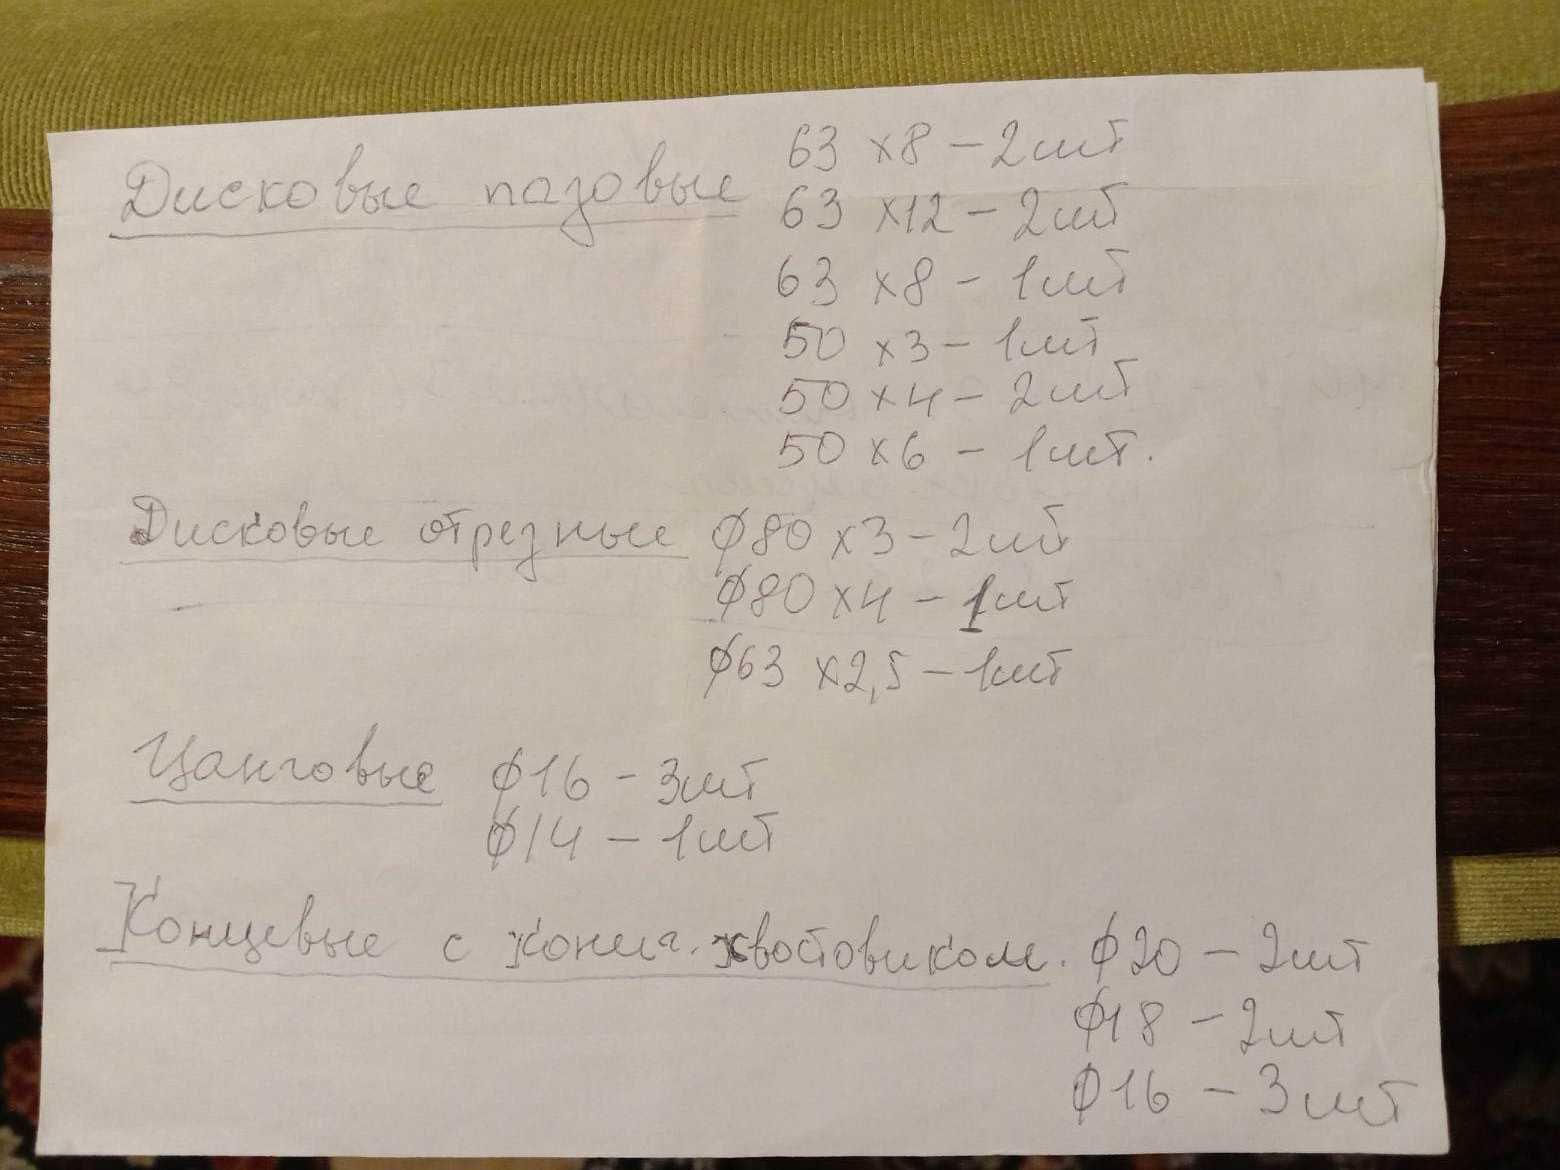 Дисковые пазовые 63 х8 – 2шт
63 х12 – 2шт
63 х8 – 1шт
50 х3 – 1шт
50 х4 – 2шт
50 х6 – 1шт.
Дисковые отрезные ф80 х3 – 2шт
ф80 х4 – 1шт
ф63 х2,5 – 1шт
Цанговые ф16 – 3шт
ф14 – 1шт
Концевые с конич. хвостовиком. ф20 – 2шт
ф18 – 2шт
ф16 – 3шт